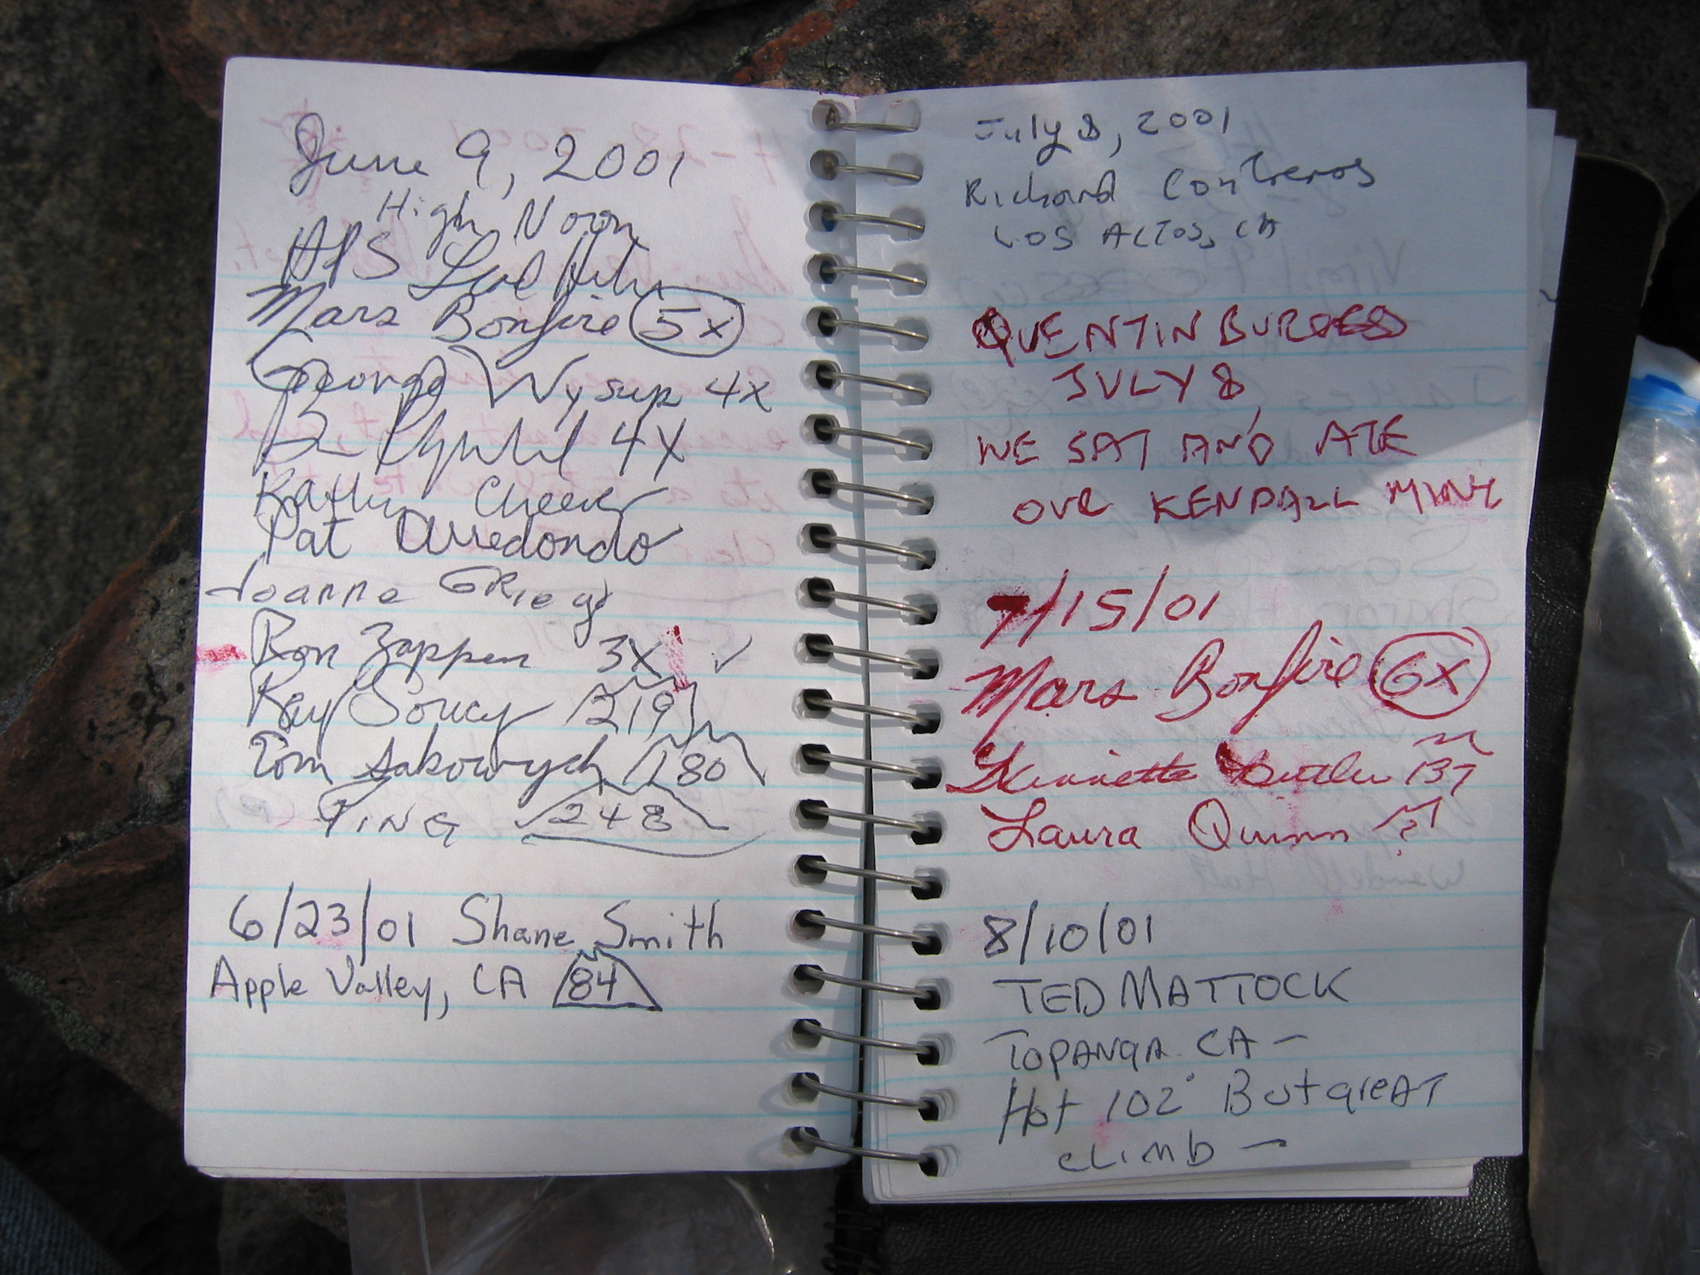 June 9, 2001
High Noon
HPS
Mars Bonfire 5x
George Wysup 4x
4X
Kathy Cheever
Pat Arredondo
Joanne Griego
Ron Zappen 3x ✓
Ray Soucy 219
Tom Sakowych 180
PING 248
6/23/01 Shane Smith
Apple Valley, CA 84
July 8, 2001
Richard Contreras
LOS ALTOS, CA
QUENTIN BURGESS
JULY 8,
WE SAT AND ATE
OUR KENDALL MINT
7/15/01
Mars Bonfire 6x
Butler 137
Laura Quinn
8/10/01
TED MATTOCK
TOPANGA CA —
Hot 102° But greAT
climb —